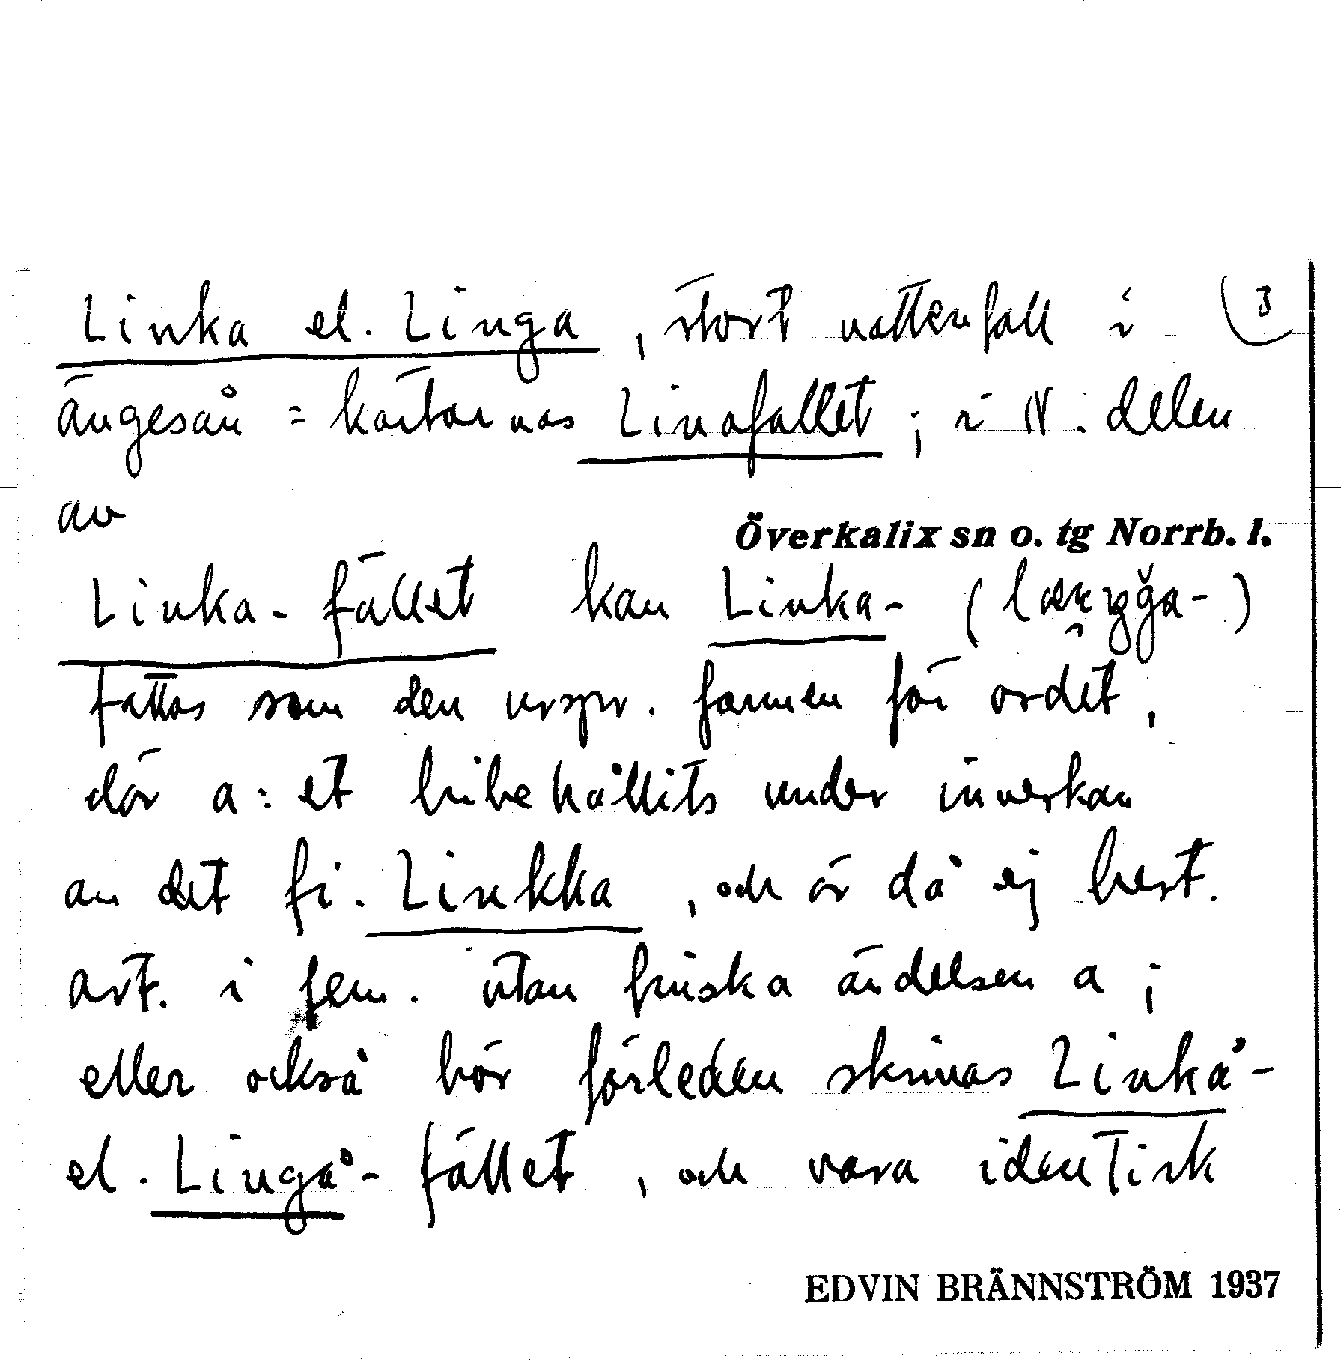 Linka el. Linga, stort vattenfall i 3
ängesån = kartornas Linafallet; i N. delen
av
Överkalix sn o. tg Norrb. l.
Linka-fallet kan Linka-
fattas som den urspr. formen för ordet,
där a:et bibehållits under inverkan
av det fi. Linkka, och är då ej best.
art. i fem. utan finska ändelsen a;
eller också bör förleden skrivas Linkå-
el. Lingå-fallet, och vara identisk
EDVIN BRÄNNSTRÖM 1937